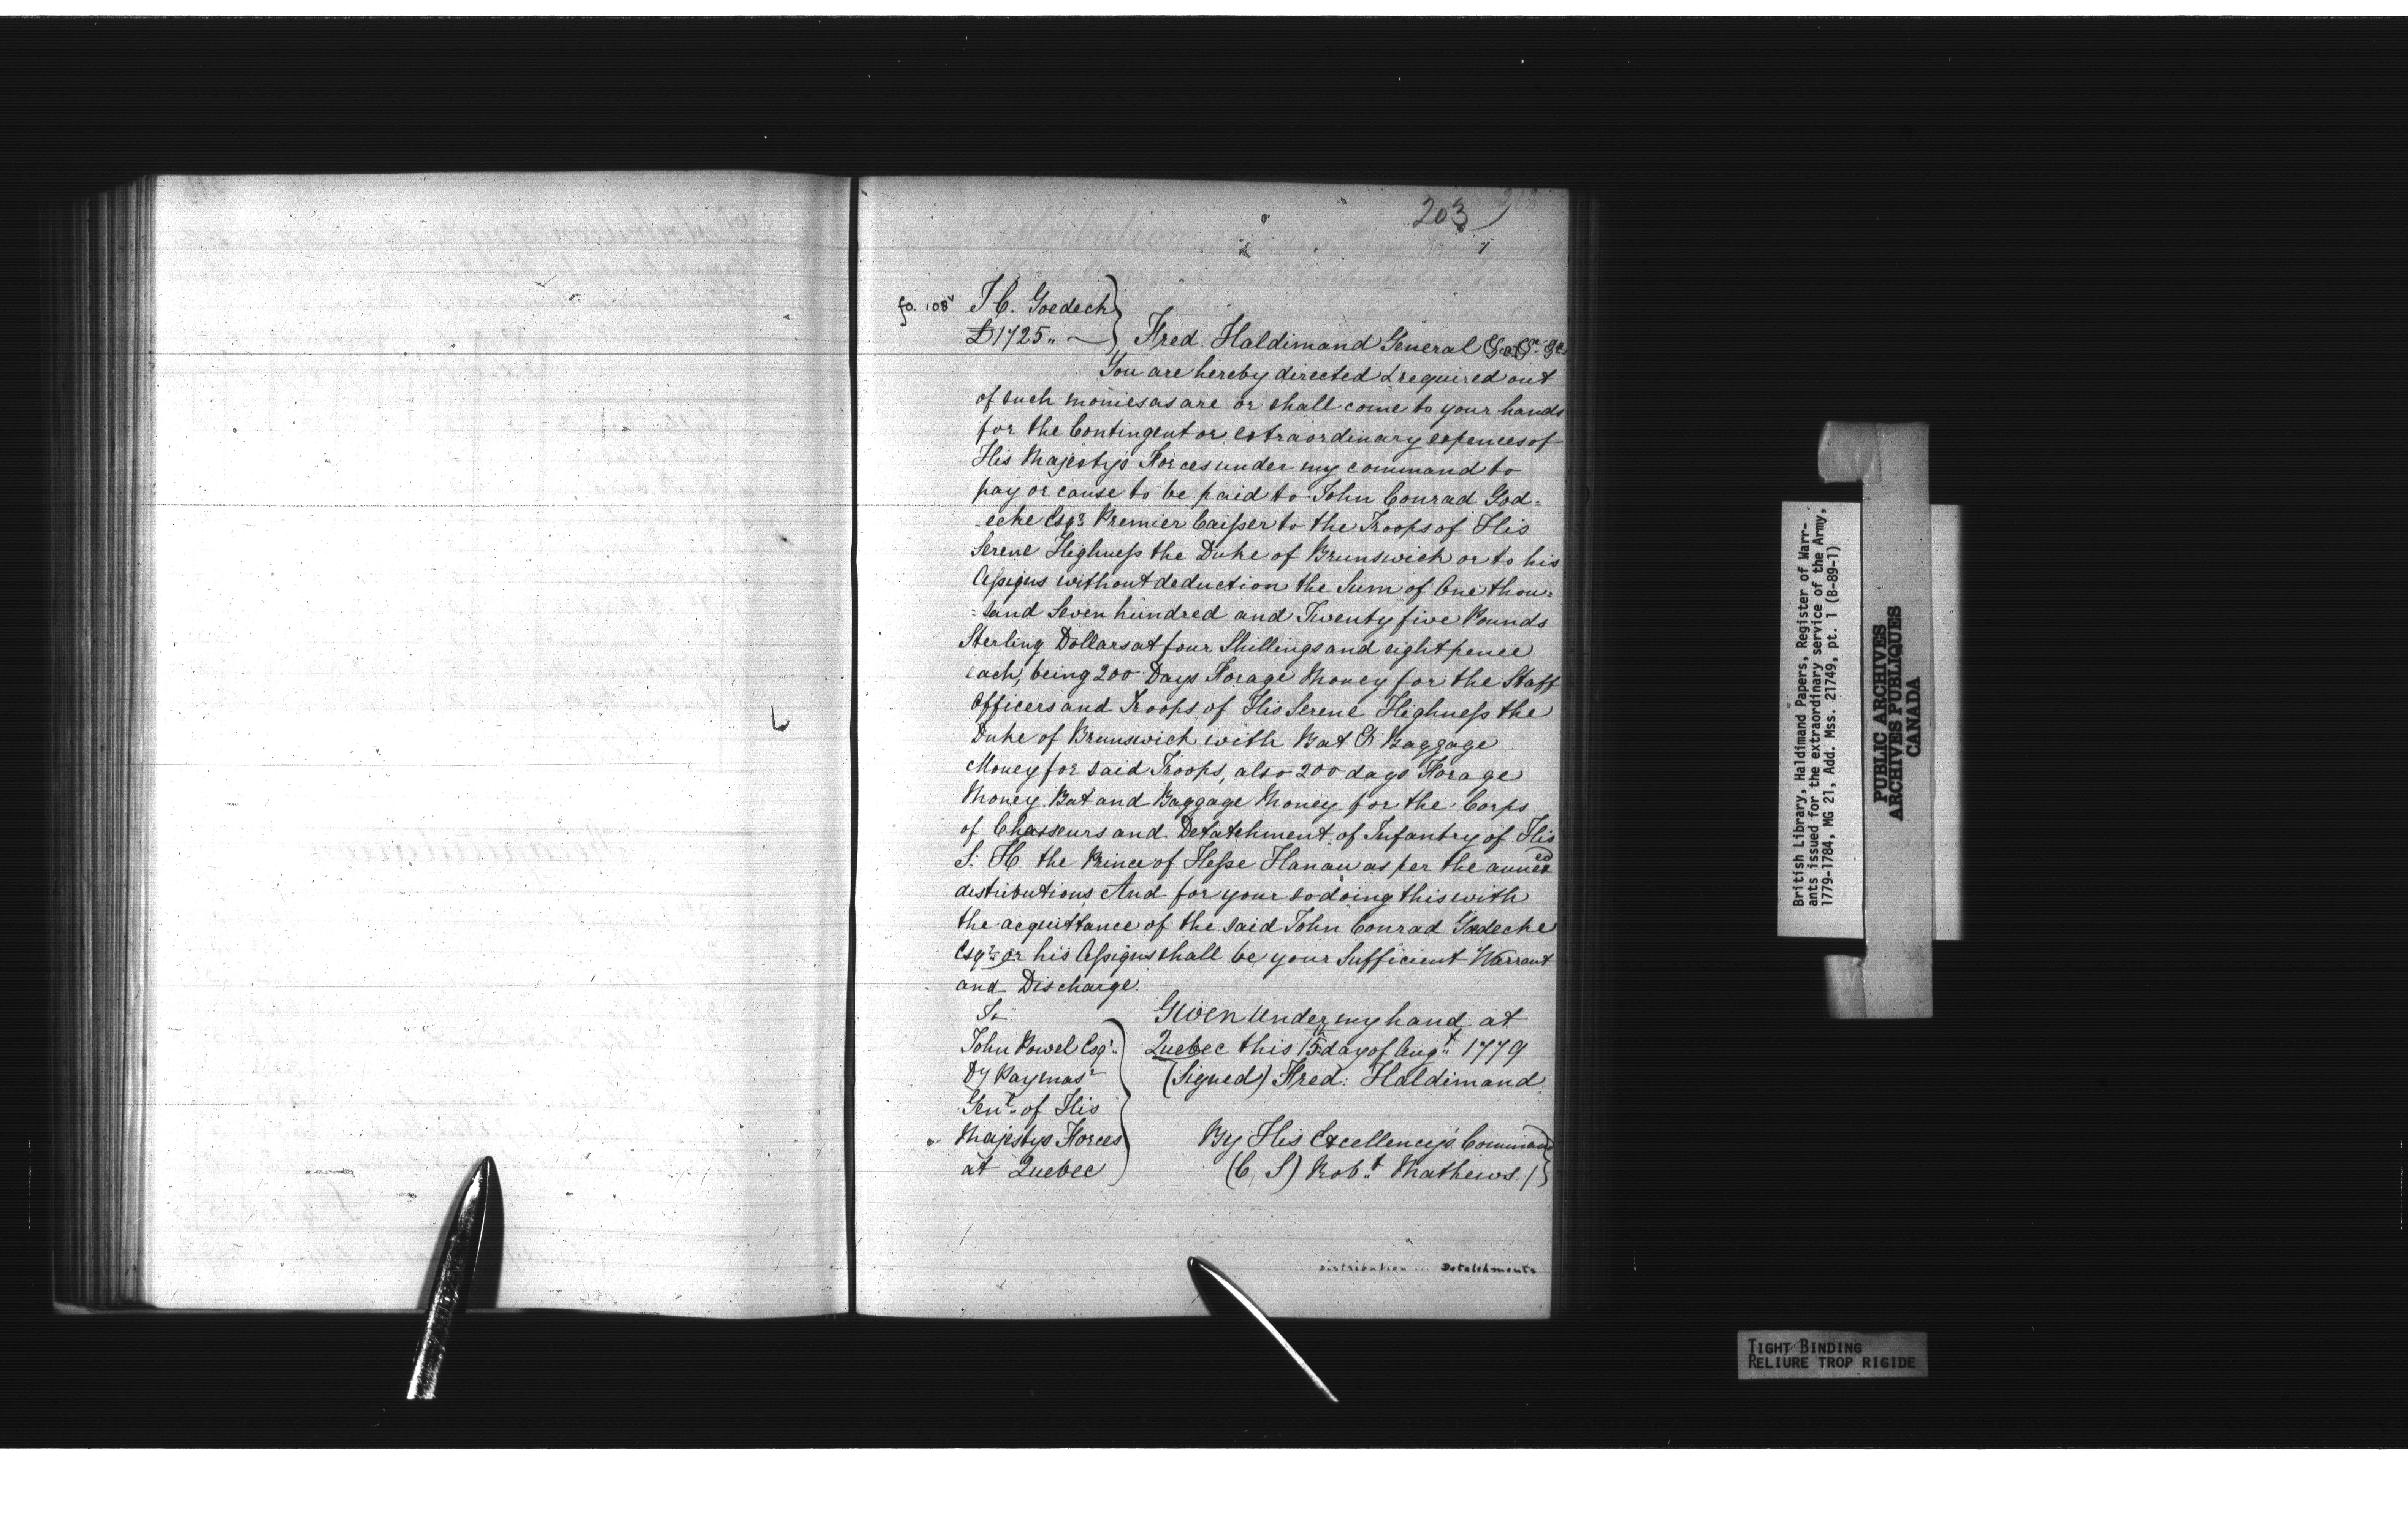 203
fo. 108v
J C. Goedech
£1725.. —
Fred. Haldimand General &c &c &c
You are hereby directed & required out
of such monies as are or shall come to your hands
for the Contingent or extraordinary expences of
His Majesty's Forces under my command to
pay or cause to be paid to John Conrad God=
=eche Esqr. Premier Caisser to the Troops of His
Serene Highness the Duke of Brunswick or to his
Assigns without deduction the Sum of One thou=
=sand Seven hundred and Twenty five Pounds
Sterling Dollars at four Shillings and eight pence
each, being 200 Days Forage Money for the Staff
Officers and Troops of His Serene Highness the
Duke of Brunswick with Bat & Baggage
Money for said Troops, also 200 days Forage
Money Bat and Baggage Money for the Corps
of Chasseurs and Detatchment of Infantry of His
S. H. the Prince of Hesse Hanau as per the annexed
distributions And for your so doing this with
the acquittance of the said John Conrad Godeche
Esqr. or his Assigns shall be your Sufficient Warrant
and Discharge.
To
John Powel Esqr.
Dy Paymasr
Genl. of His
Majestys Forces
at Quebec
Given under my hand at
Quebec this 15th day of Augt. 1779
(Signed) Fred: Haldimand
By His Excellency's Command
(C, S) Robt. Mathews /
Distribution ... Detatchments
British Library, Haldimand Papers, Register of Warr-
ants issued for the extraordinary service of the Army,
1779-1784, MG 21, Add. Mss. 21749, pt. 1 (B-89-1)
PUBLIC ARCHIVES
ARCHIVES PUBLIQUES
CANADA
TIGHT BINDING
RELIURE TROP RIGIDE